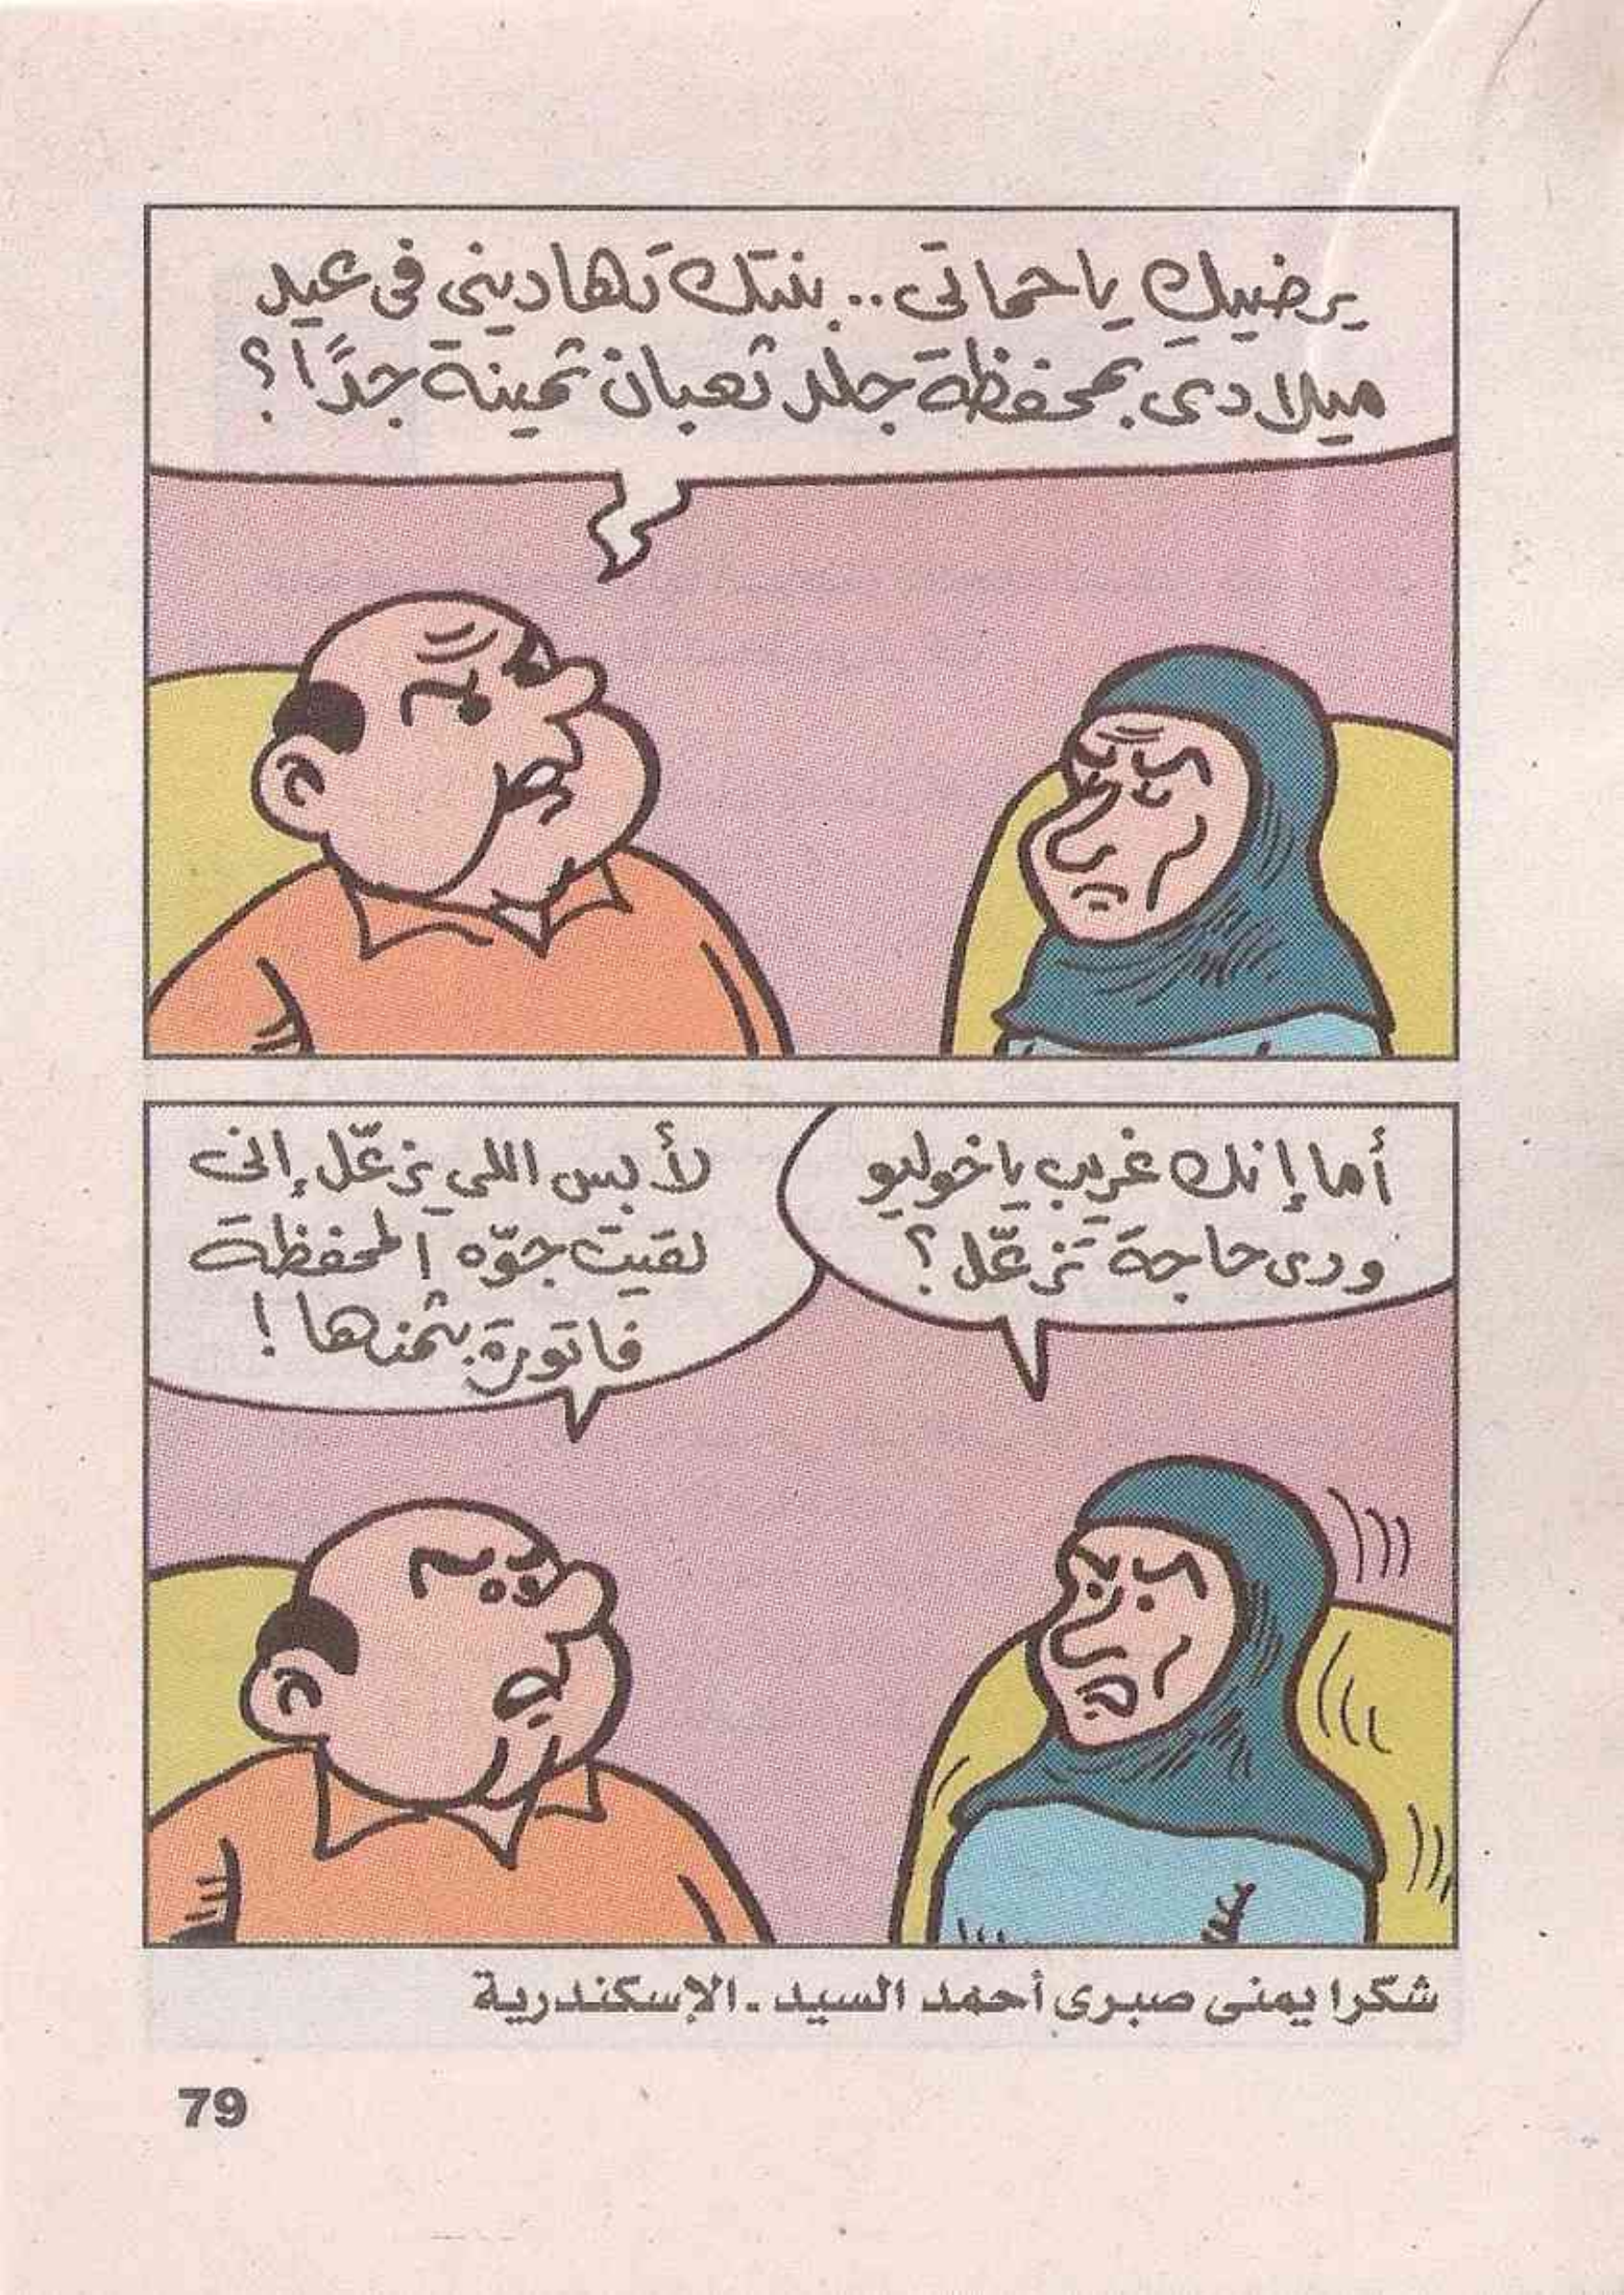 يرضيكِ يا حماتى.. بنتك تهادينى فى عيد
ميلادى بمحفظة جلد ثعبان ثمينة جدًا؟
أما إنك غريب يا خوليو
ودى حاجة تزعّل؟
لأ بس اللى يزعّل إنى
لقيت جوّه المحفظة
فاتورة بثمنها!
شكرا يمنى صبرى أحمد السيد - الإسكندرية
79